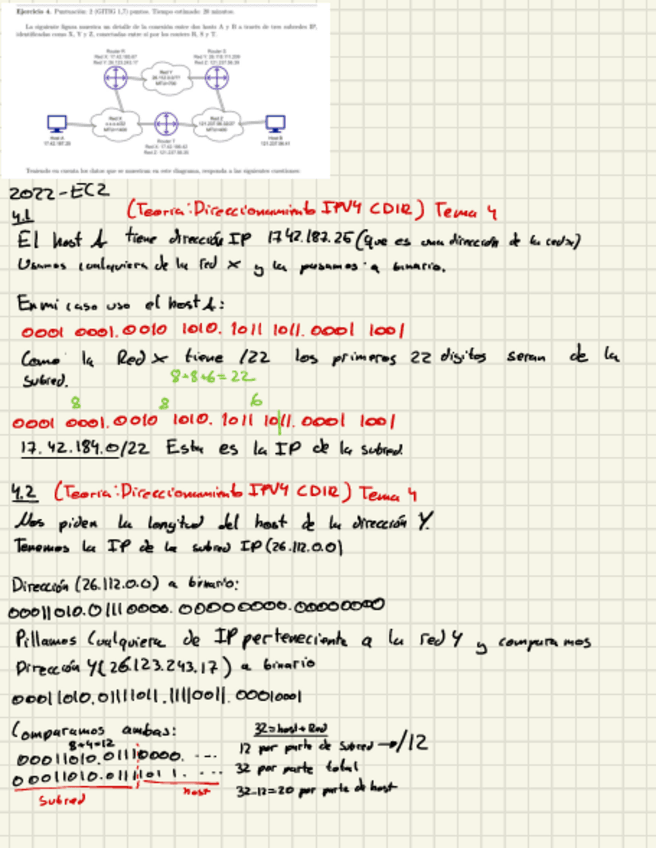 Ejercicio 4. Puntuación: 2 (GITIG 1,7) puntos. Tiempo estimado: 20 minutos.
La siguiente figura muestra un detalle de la conexión entre dos hosts A y B a través de tres subredes IP, identificadas como X, Y y Z, conectadas entre sí por los routers R, S y T:
Router R
Router S
Red Y
Red X
Red Z
Host A
17.42.187.25
Router T
Host B
Teniendo en cuenta los datos que se muestran en este diagrama, responda a las siguientes cuestiones:
2022-EC2
4.1 (Teoría: Direccionamiento IPV4 CDIR) Tema 4
El host A tiene dirección IP 17.42.187.25 (que es una dirección de la red x)
Usamos cualquiera de la red x y la pasamos a binario.
En mi caso uso el host A:
0001 0001. 0010 1010. 1011 1011. 0001 1001
Como la Red x tiene /22 los primeros 22 digitos seran de la
subred. 8+8+6=22
8 8 6
0001 0001. 0010 1010. 1011 1011. 0001 1001
17.42.184.0/22 Esta es la IP de la subred.
4.2 (Teoría: Direccionamiento IPV4 CDIR) Tema 4
Nos piden la longitud del host de la dirección Y.
Tenemos la IP de la subred IP (26.112.0.0)
Dirección (26.112.0.0) a binario:
00011010.01110000.00000000.00000000
Pillamos cualquiera de IP perteneciente a la red Y y comparamos
Dirección Y (26.123.243.17) a binario
00011010.01111011.11110011.00010001
Comparamos ambas: 32=host+Red
8+4=12 12 por parte de subred → /12
00011010.01110000. ... 32 por parte total
00011010.01111011. ... 32-12=20 por parte de host
subred host